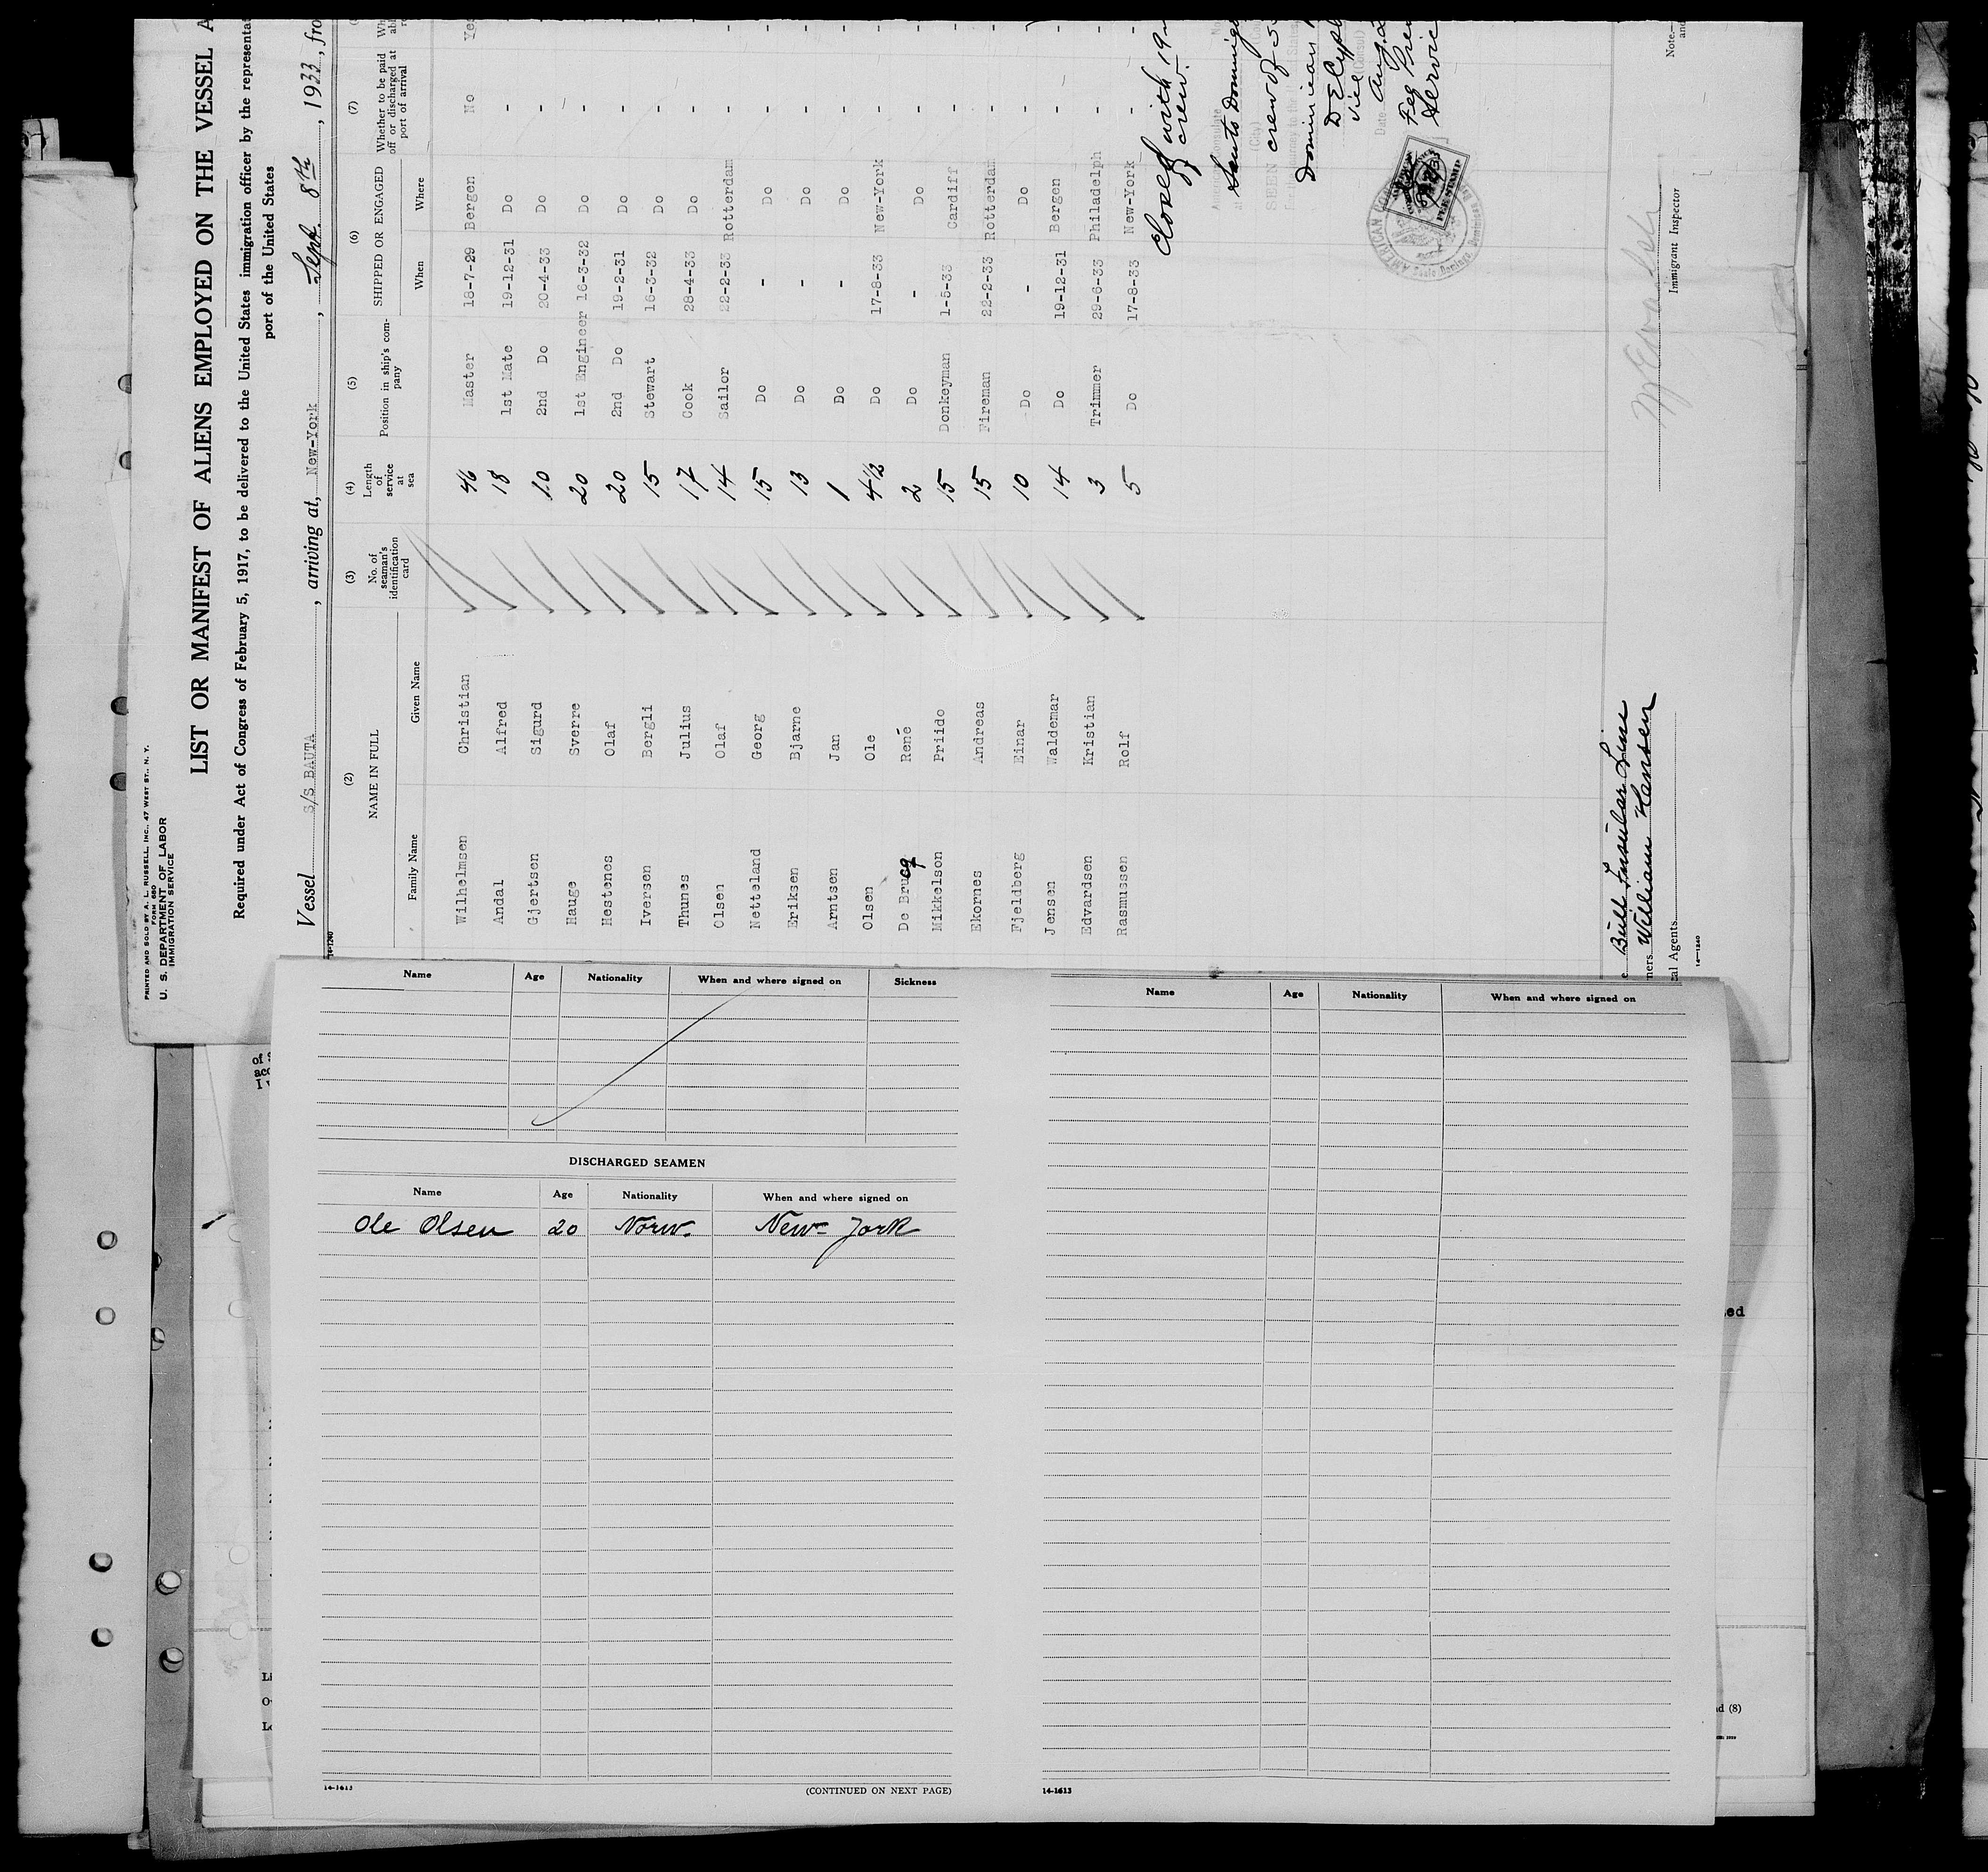 PRINTED AND SOLD BY A. L. RUSSELL, INC., 47 WEST ST., N. Y.
FORM 680
U. S. DEPARTMENT OF LABOR
IMMIGRATION SERVICE
LIST OR MANIFEST OF ALIENS EMPLOYED ON THE VESSEL A
Required under Act of Congress of February 5, 1917, to be delivered to the United States immigration officer by the representat
port of the United States
Vessel S/S BAUTA, arriving at, New-York, Sept 8th, 1933, fro
14-1240
(2) NAME IN FULL
Family Name Given Name
(3) No. of seaman's identification card
(4) Length of service at sea
(5) Position in ship's company
(6) SHIPPED OR ENGAGED
When Where
(7) Whether to be paid off or discharged at port of arrival
Wilhelmsen Christian 46 Master 18-7-29 Bergen No Yes
Andal Alfred 18 1st Mate 19-12-31 Do - -
Gjertsen Sigurd 10 2nd Do 20-4-33 Do - -
Hauge Sverre 20 1st Engineer 16-3-32 Do - -
Hestenes Olaf 20 2nd Do 19-2-31 Do - -
Iversen Bergli 15 Stewart 16-3-32 Do - -
Thunes Julius 17 Cook 28-4-33 Do - -
Olsen Olaf 14 Sailor 22-2-33 Rotterdam - -
Netteland Georg 15 Do - Do - -
Eriksen Bjarne 13 Do - Do - -
Arntsen Jan 1 Do - Do - -
Olsen Ole 4½ Do 17-8-33 New-York - -
De Brucq René 2 Do - Do - -
Mikkelson Priido 15 Donkeyman 1-5-33 Cardiff - -
Ekornes Andreas 15 Fireman 22-2-33 Rotterdam - -
Fjeldberg Einar 10 Do - Do - -
Jensen Waldemar 14 Do 19-12-31 Bergen - -
Edvardsen Kristian 3 Trimmer 29-6-33 Philadelph - -
Rasmussen Rolf 5 Do 17-8-33 New-York - -
Closed with 19
crew.
Santo Doming
(City)
SEEN
crew of
Dominican
Vice (Consul)
Date Aug. 2
Fee
Service
AMERICAN
FEE STAMP
Santo Domingo, Dominican
Immigrant Inspector
Note.—
and
Bull Insular Line
ners. William Hansen
al Agents
14-1240
Name Age Nationality When and where signed on Sickness
DISCHARGED SEAMEN
Name Age Nationality When and where signed on
Ole Olsen 20 Norw. New-York
14-1613
(CONTINUED ON NEXT PAGE)
Name Age Nationality When and where signed on
14-1613
of
acc
I
Li
O
Lo
ed
d (8)